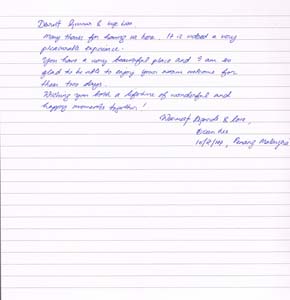 Many thanks for having us here. It is indeed a very
pleasurable experience.
You have a very beautiful place and I am so
glad to be able to enjoy your warm welcome for
these two days.
Wishing you both a lifetime of wonderful and
happy moments together!
Warmest Regards & love,
Penang Malaysia